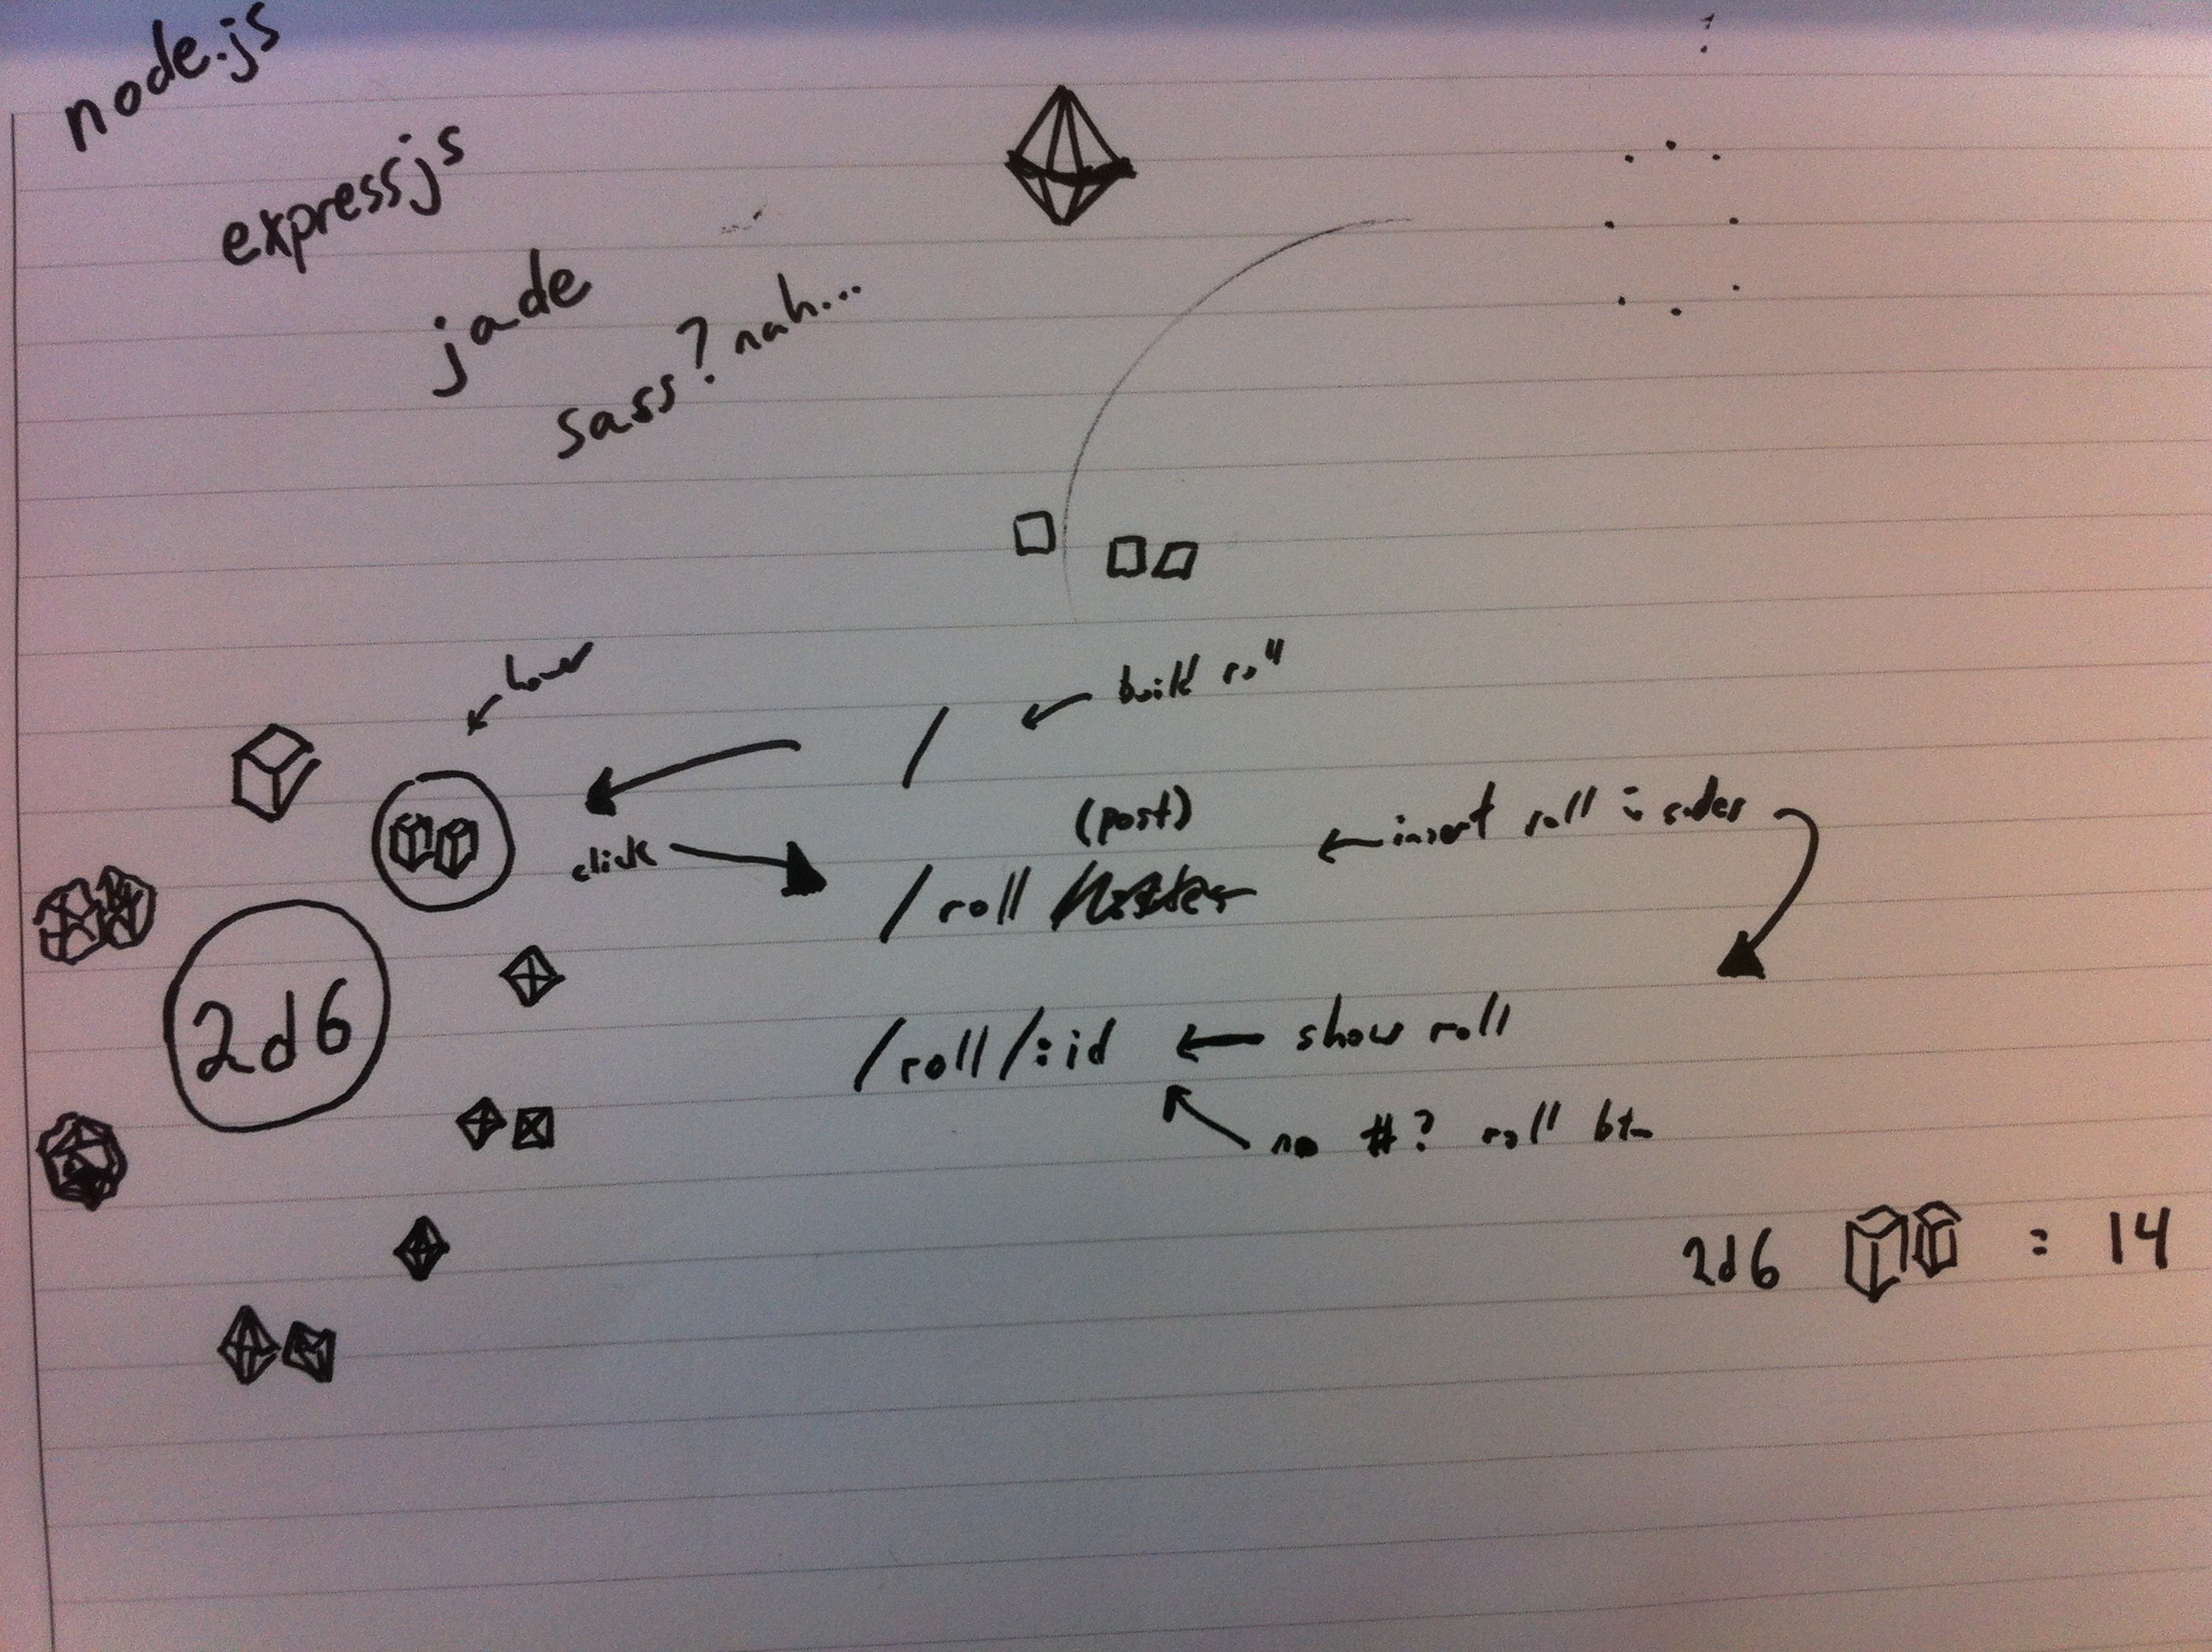 node.js
expressjs
jade
sass? nah...
hover
build roll
/
(post)
click
insert roll
/roll
2d6
/roll/:id
show roll
no #? roll btn
2d6 = 14